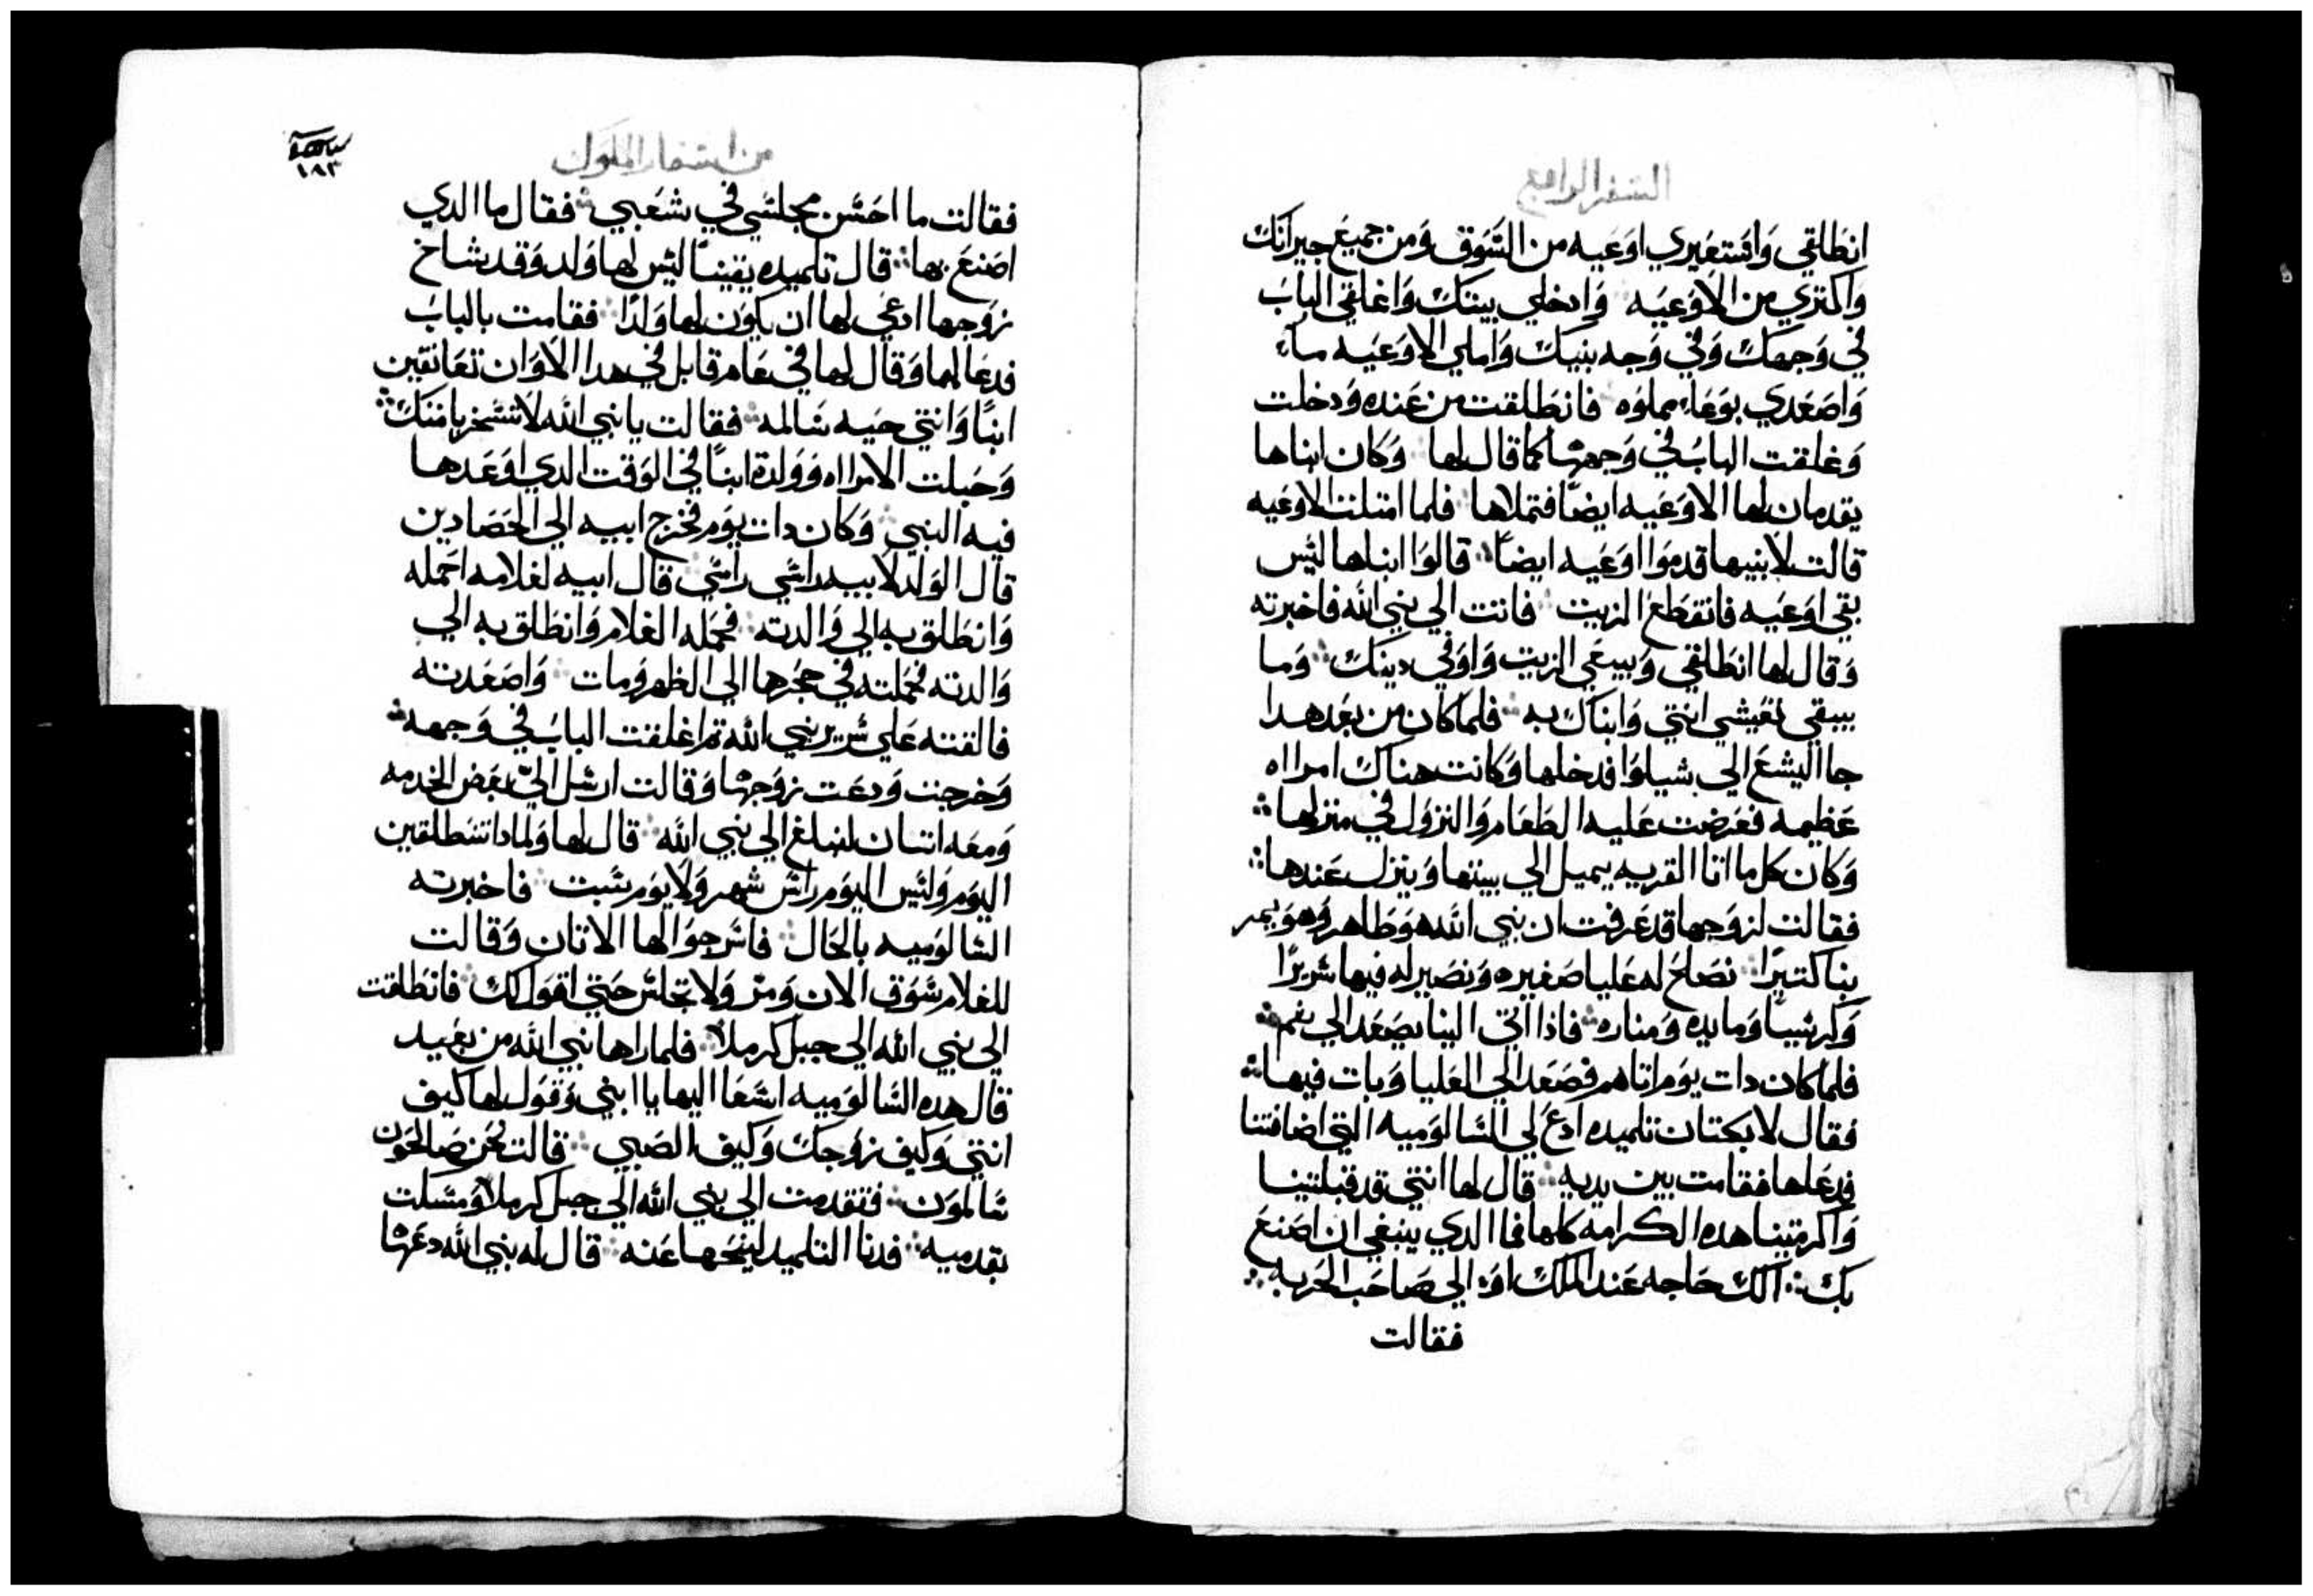 السفر الرابع
انطلقي وَاستعيري اوعَيه من السَوق وَمن جميع جيرانك
وَاكتري من الاوَعيَه وَادخلي بيتك وَاغلقي البابَ
في وَجهك وَفي وَجه بنيك وَاملي الاوعَيه ماء
وَاصعَدي بوعَاء مملوَه فانطلقت من عَنده وَدخلت
وَغلقت البابُ في وَجهها كما قال لها وَكان ابناها
يقدمان لها الاوعَيه ايضًا فتملاها فلما امتلت الاوعَيه
قالت لابنيها قدموَا اوعَيه ايضًا قالوَا ابناها ليس
بقي اوعَيه فانقطع الزيت فاتت الي نبي الله فاخبرته
وَقال لها انطلقي وَبيعَي الزيت وَاوَفي دينك وَما
يبقي تعَيشي انتي وَابناك به فلما كان من بعَد هدا
جا اليشع الي شيلوَا فدخلها وَكانت هناك امرااه
عَظيمه فعَرضت عَليه الطعَام وَالنزوَل في منزلها
وَكان كل ما اتا القريه يميل الي بيتها وَينزل عَندها
فقالت لزوَجها قد عَرفت ان نبي الله هوَ طاهر وَهوَ يمر
بنا كتيرًا نصَلح له عَليا صَغيره وَنصَير له فيها سَريرًا
وَكرسَيًا وَمايده وَمناره فاذا اتي الينا يصعَد الي تم
فلما كان دات يوَم اتاهم فصَعَد الي العَليا وَبات فيها
فقال لابكتان تلميده ادعَ لي السَالوَميه التي اضافتنا
فدعَاها فقامت بين يديه قال لها انتي قد قبلتينا
وَاكرمتينا هده الكرامه كلها فما الدي ينبغي ان اصَنعَ
بك الك حَاجه عَند الملك اوَ الي صَاحَب الحَربه
فقالت
من اسفار الملوَك
١٨٣
فقالت ما احَسَن مجلسَي في شعَبي فقال ما الدي
اصَنعَ بها قال تلميده يقينًا ليس لها وَلد وَقد شاخ
زوَجها ادعَي لها ان يكوَن لها وَلدًا فقامت بالبابُ
فدعَا لها وَقال لها في عَام قابل في هدا الاوَان تعَانقين
ابنًا وَانتي حَيه سَالمه فقالت يا نبي الله لا تسَخر بامتك
وَحَبلت الامرااه وَوَلدة ابنًا في الوَقت الدي اوَعَدها
فيه النبي وَكان دات يوَم فخرج ابيه الي الحَصَادين
قال الوَلد لابيه راسَي راسَي قال ابيه لغلامه احَمله
وَانطلق به الي وَالدته فحَمله الغلام وَانطلق به الي
وَالدته فحَملته في حجَرها الي الظهر وَمات وَاصَعَدته
فالقته عَلي سَرير نبي الله تم اغلقت البابُ في وَجهه
وَخرجت وَدعَت زوَجها وَقالت ارسَل اليّ بعَض الخدمه
وَمعَه اتنان لنبلغ الي نبي الله قال لها وَلمادا تنطلقين
اليوَم وَليس اليوَم راس شهر وَلا يوَم سَبت فاخبرته
السَالوَميه بالحَال فاسَرجوَا لها الاتان وَقالت
للغلام سَوَق الان وَمرّ وَلا تجلس حَتي اقوَل لك فانطلقت
الي نبي الله الي جبل كرملا فلما راها نبي الله من بعَيد
قال هده السَالوَميه اسَعَا اليها يا ابني وَقوَل لها كيف
انتي وَكيف زوَجك وَكيف الصَبي قالت نحَن صَالحَوَن
سَالموَن فتقدمت الي نبي الله الي جبل كرملا وَمسَكت
بقدميه فدنا التلميد لينحَها عَنه قال له نبي الله دعَها